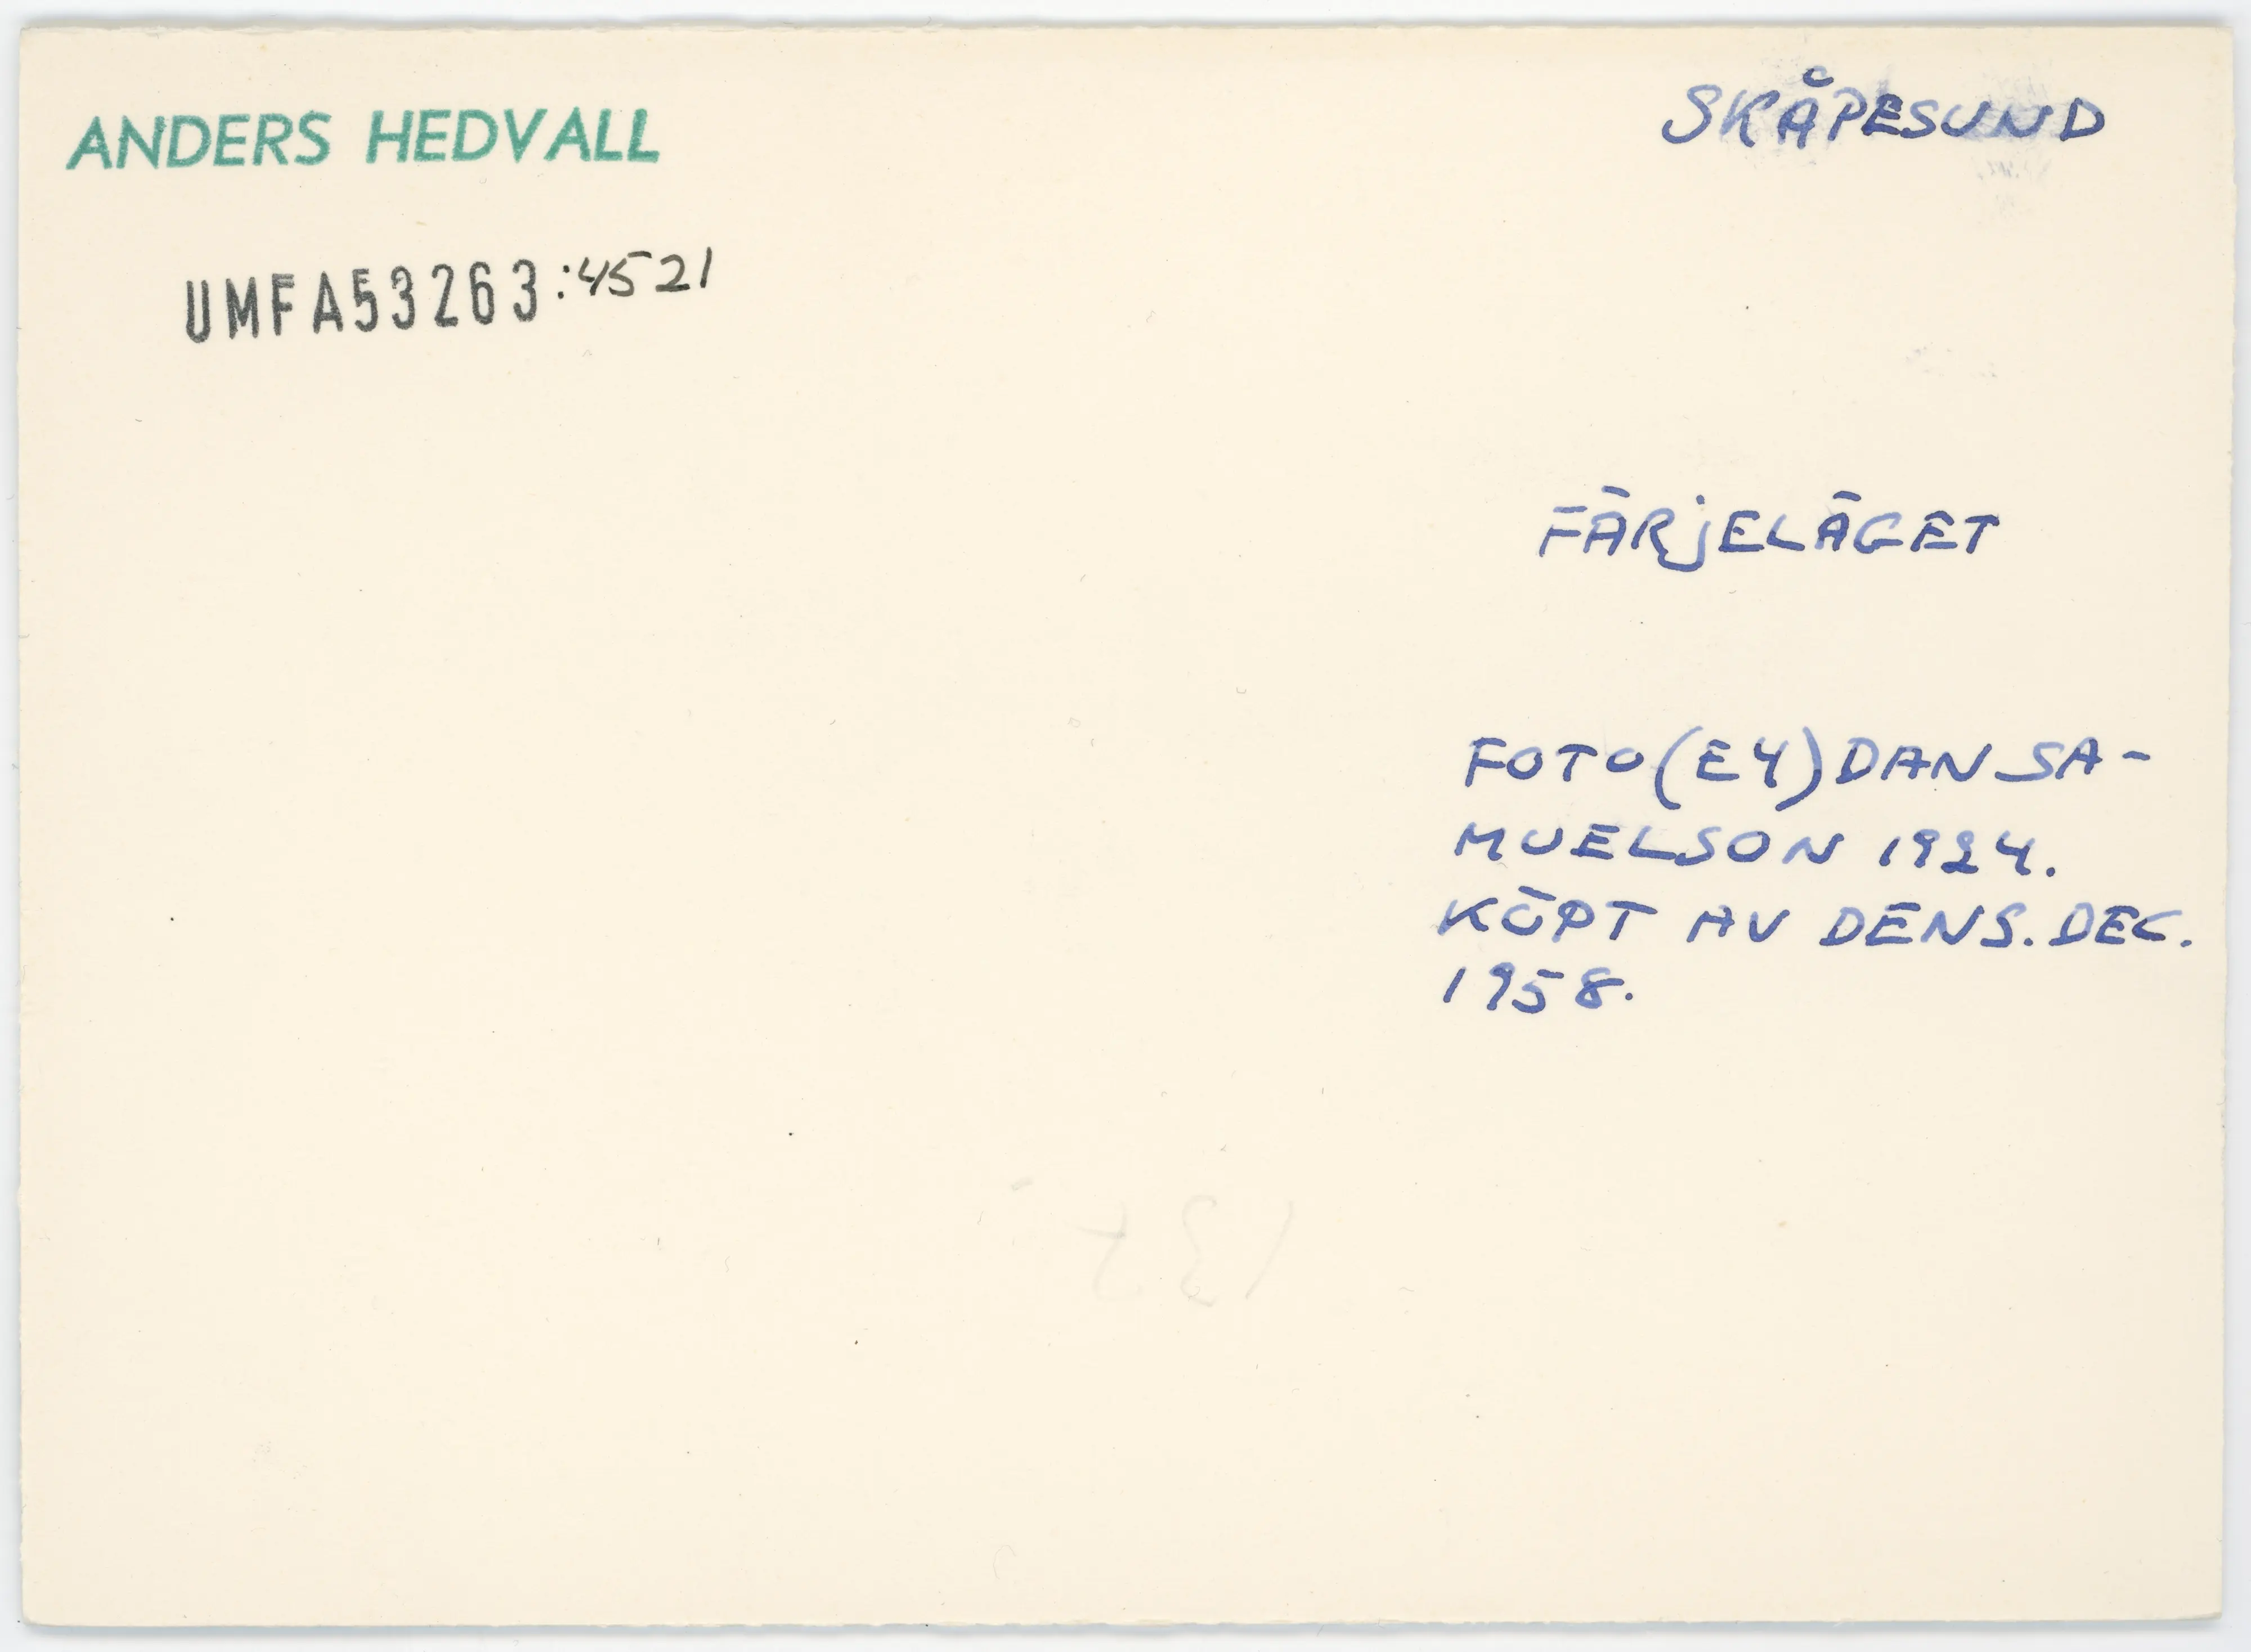 ANDERS HEDVALL
SKÅPESUND
UMFA53263:4521
FÄRJELÄGET
FOTO (E4) DAN SA-
MUELSON 1924.
KÖPT AV DENS. DEC.
1958.